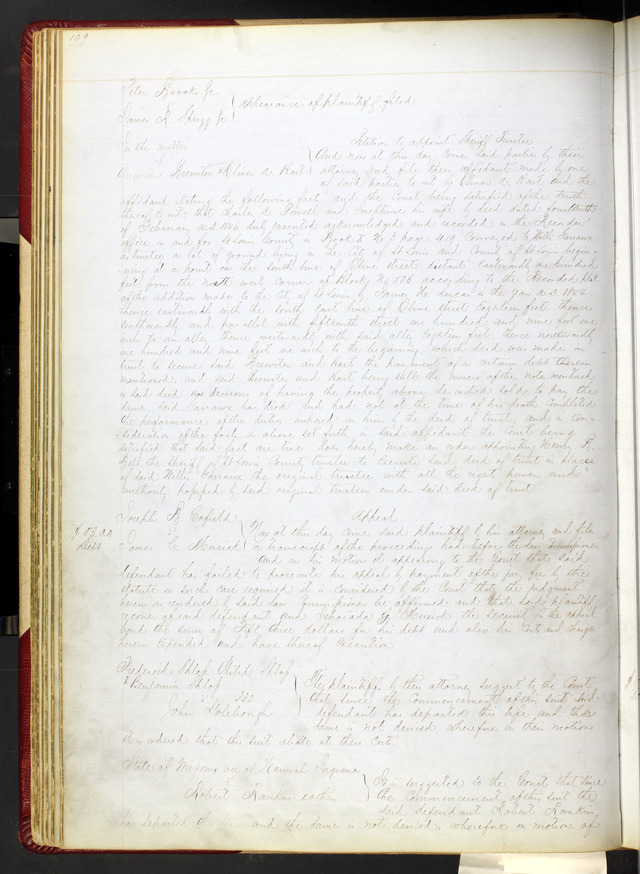 109
Peter Brooks Jr
} appearance of plaintiff filed
James R. Spriggs Jr
In the matter Petition to appoint Sheriff Trustee
of And now at this day come said parties by their
Brewster & Oliver A. Hart } attorney and file their affidavit made by one
of said parties to wit by Oliver A. Hart and the
affidavit stating the following facts, and the Court being satisfied of the truth
thereof to wit: that Charles A. Powell and Josephine his wife by deed dated fourteenth
of February A.D. duly executed acknowledged and recorded in the Recorder's
office in and for St Louis County in Book No 3 page 419. Conveyed to Willis
as trustee a lot of ground lying in the City of St Louis and County of St Louis
at a point on the South line of Olive street distant Eastwardly one hundred
feet from the North west corner of Block No 506 according to the Recorded plat
of the addition made to the City of St Louis by James H. Lucas in the year A.D. 1844.
thence eastwardly with the south line of Olive street Eighteen feet, thence
southwardly and parallel with fifteenth street one hundred and nine feet one
inch to an alley, thence westwardly with said alley Eighteen feet, thence northwardly
one hundred and nine feet one inch to the beginning, which deed was made in
trust to secure said Brewster and Hart the payment of a certain debt therein
mentioned, and said Brewster and Hart being still the owners of the note mentioned
in said deed are desirous of having the property above described sold to pay the
same said has died and had not at the time of his death completed
the performance of the duties imposed on him by the deed of trust, and in con-
sideration of the facts as above set forth in said affidavit the Court being
satisfied that said facts are true does hereby make an order appointing
the sheriff of St Louis County trustee to execute said deed of trust in place
of said Willis the original trustee with all the right power and
authority possessed by said original trustee under said deed of trust
Joseph B. Cofield Appeal
$53.00 } Now at this day comes said plaintiff by his attorney and files
Debt James C. Musick a transcript of the proceedings had before the law commissioner
And on his motion it appearing to the Court that said
defendant has failed to prosecute his appeal by payment of the jury fee by the
statute in such case required it is considered by the Court that the judgment
herein rendered by said Law Commissioner be affirmed and that said plaintiff
recover of said defendant and Musick his security in the appeal
bond the sum of fifty three dollars for his debt and also his costs and charges
herein expended and have thereof Execution
Frederick Shlap
& Benjamin Shlap } The plaintiffs by their attorney suggest to the Court
vs 332 that since the Commencement of this suit said
John Golsborough defendant has departed this life, and the
same is not denied, wherefore on their motion
it is ordered that the suit abate at their costs.
State of Missouri use of Hannah
} It is suggested to the Court that since
Robert Rankin & other the Commencement of this suit the
said defendant Robert Rankin
has departed this life and the same is not denied, wherefore on motion of